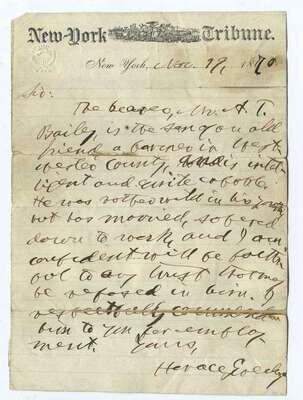 New-York Tribune.
New York, Nov. 19, 1870
Sir:
The bearer, Mr. A. T.
Bailey, is the son of an old
friend, a farmer in West-
chester County, and is intel-
ligent and quite capable.
He was rather wild in his
but has moored, sobered
down to work, and I am
confident will be faith-
ful to any trust that may
be reposed in him. I
respectfully commend
him to you for employ-
ment. Yours,
Horace Greeley